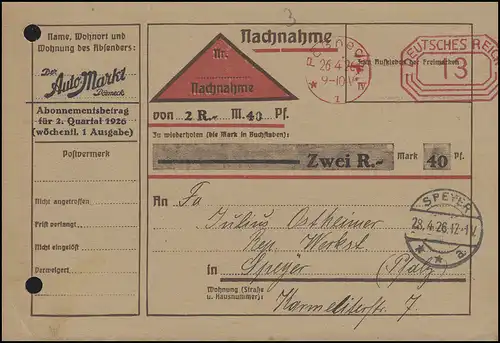 3
Name, Wohnort und
Wohnung des Absenders:
Der
Auto-Markt
Pössneck
Abonnementsbetrag
für 2. Quartal 1926
(wöchentl. 1 Ausgabe)
Postvermerk
Nicht angetroffen
Frist verlangt
Nicht eingelöst
Verweigert
Nachnahme
Nr.
Nachnahme
26.4.26
9-10 V
IV
1
DEUTSCHES REICH
13
zum Aufkleben der Freimarken
von 2 R.- M. 40 Pf.
Zu wiederholen (die Mark in Buchstaben):
Zwei R.- Mark 40 Pf.
An Fa
Julius Ostheimer
Rep. Werkst.
in Speyer (Pfalz)
Wohnung (Straße
u. Hausnummer): Karmeliterstr. 7
SPEYER
28.4.26.12-1V.
a